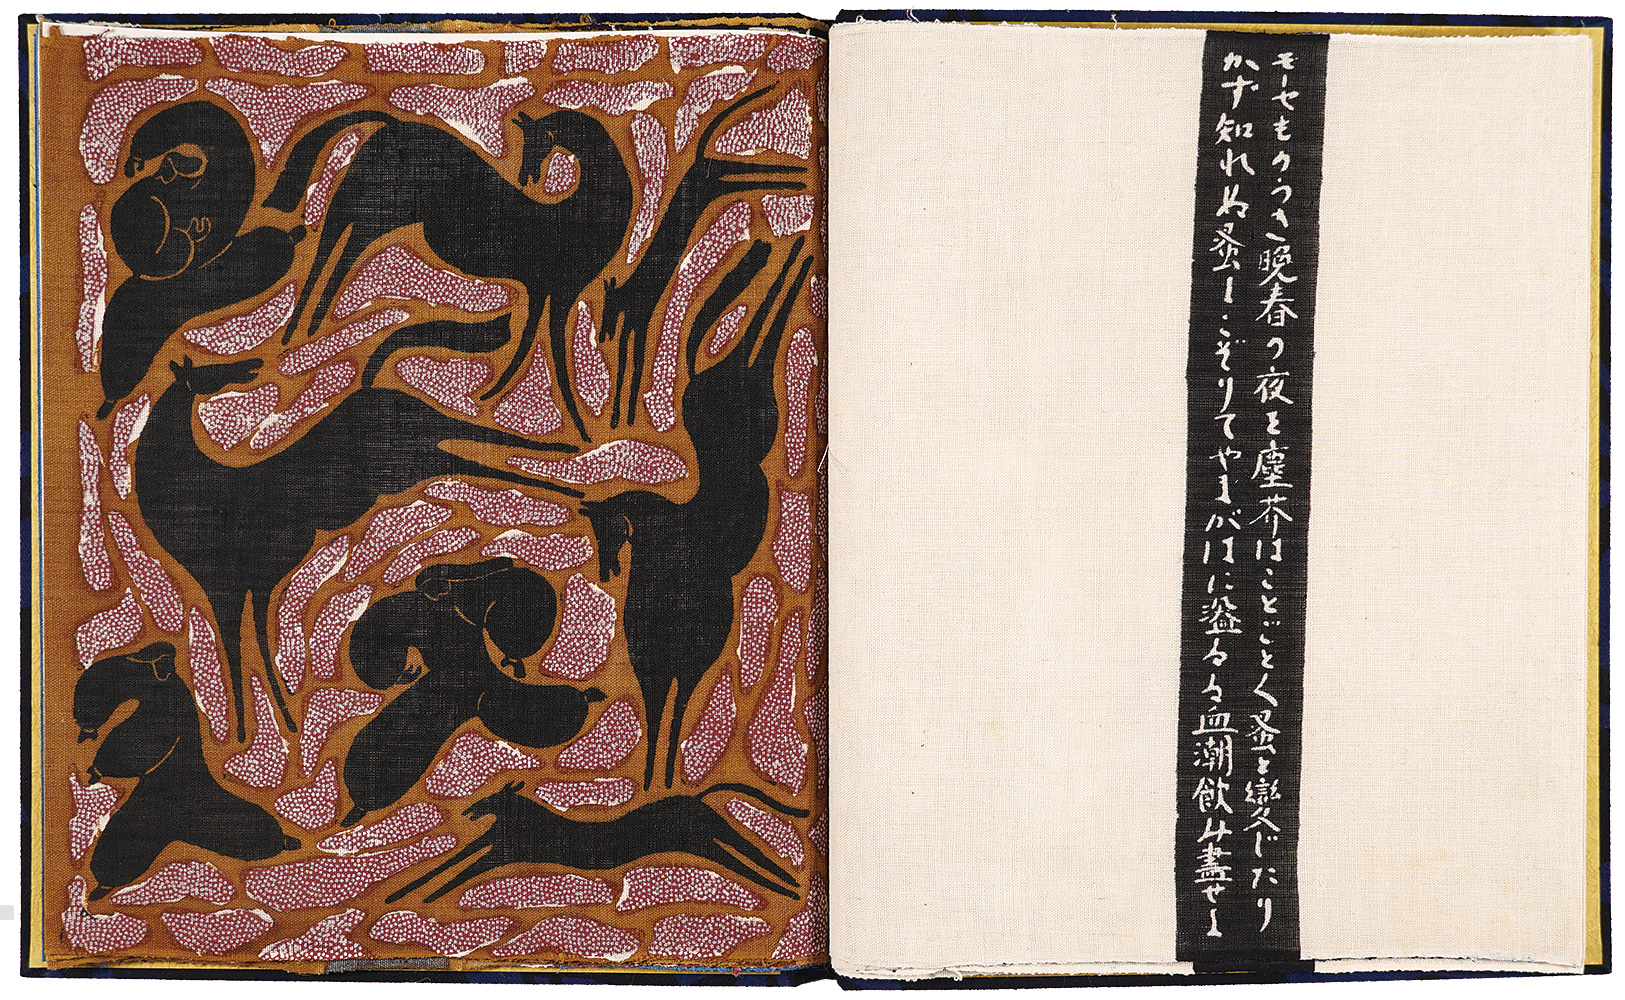 モーセものうき晩春の夜を塵芥はことごとく蚤と變じたり
かず知れぬ蚤よこぞりてやまがはに溢るる血潮飲み盡せよ